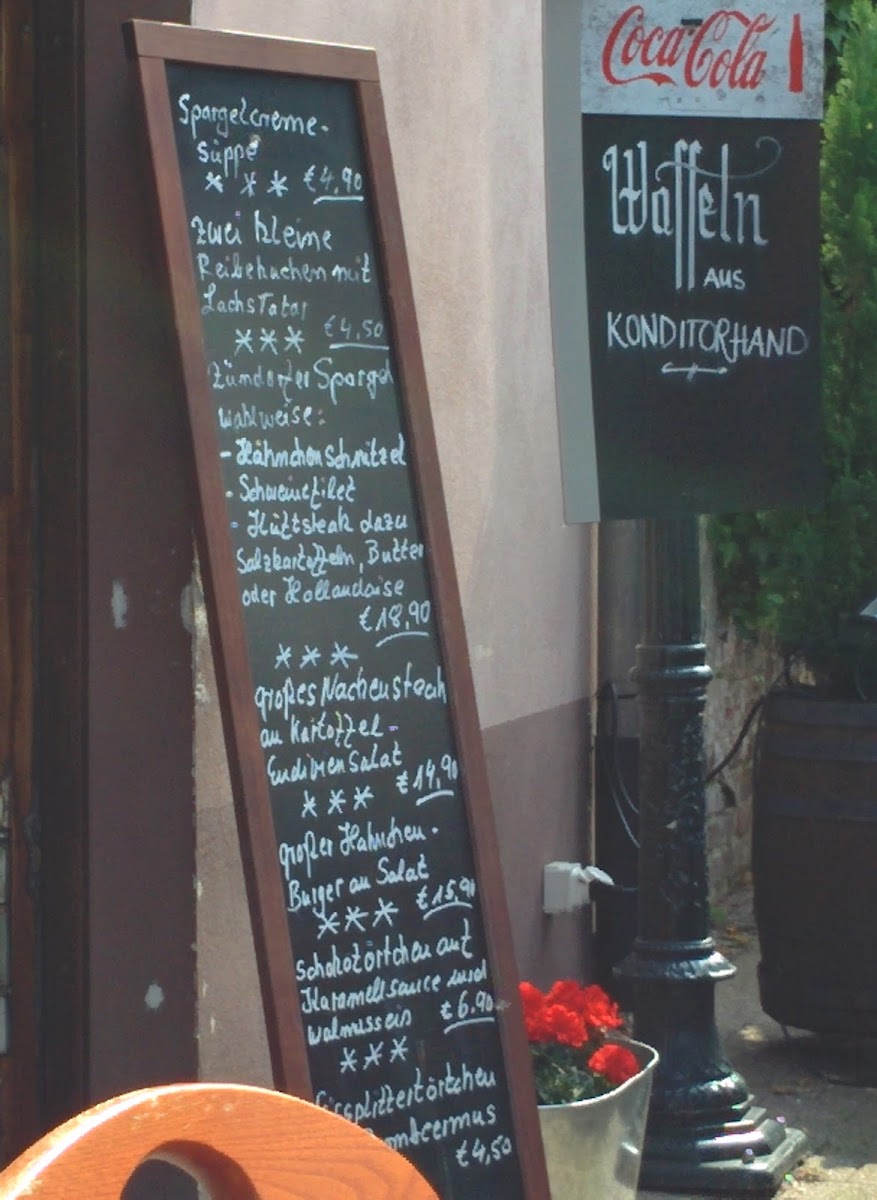 Spargelcreme-
suppe
* * * €4,90
zwei kleine
Reibekuchen mit
LachsTatar
*** €4,50
Zündorfer Spargel
wahlweise:
- Hähnchenschnitzel
- Schweinefilet
- Hüftsteak dazu
Salzkartoffeln, Butter
oder Hollandaise
€18,90
***
großes Nackensteak
an Kartoffel-
Endivien Salat
*** €14,90
großer Hähnchen-
Burger an Salat
*** €15,90
Schokotörtchen auf
Karamellsauce und
Walnusseis €6.90
***
splittertörtchen
€4,50
Coca-Cola
Waffeln
AUS
KONDITORHAND